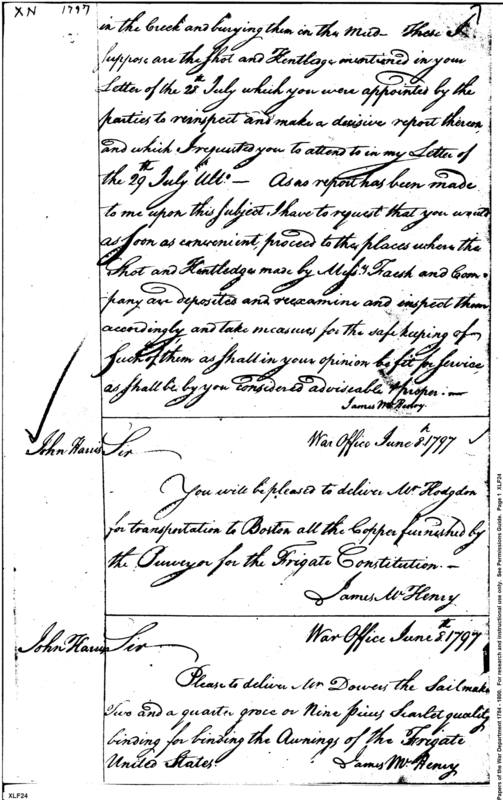 XN 1797
in the Creek and burying them in the Mud – These I
suppose are the Shot and Kentledge mentioned in your
Letter of the 25th July which you were appointed by the
parties to reinspect and make a decisive report thereon,
and which I requested you to attend to in my Letter of
the 29th July Ulto. — As no report has been made
to me upon this subject I have to request that you would
as soon as convenient, proceed to the places where the
Shot and Kentledge made by Messrs Faesh and Com-
pany are deposited and reexamine and inspect them
accordingly, and take measures for the safe keeping of
such of them as shall in your opinion be fit for Service
as shall be by you considered adviseable & proper. —
James McHenry
John Harris Sir War Office June 8th 1797
You will be pleased to deliver Mr Hodgdon
for transportation to Boston all the Copper furnished by
the Purveyor for the Frigate Constitution. —
James McHenry
John Harris Sir War Office June 8th 1797
Please to deliver Mr Dowers the Sail maker
Two and a quarter groce or Nine pieces Scarlet quality
binding for binding the Awnings of the Frigate
United States James McHenry
XLF24
Papers of the War Department 1784 - 1800. For research and instructional use only. See Permissions Guide. Page 1 XLF24